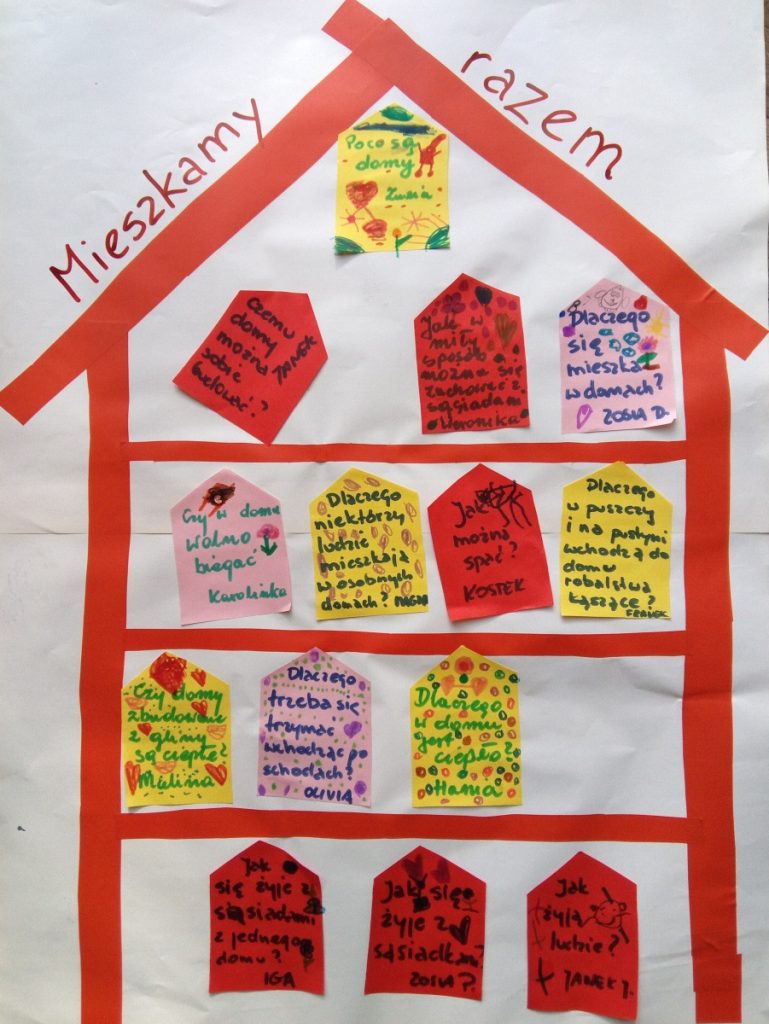 Mieszkamy razem
Po co są
domy
Zuzia
Czemu
domy
można
sobie
budować?
JANEK
Jak w
miły
sposób
można się
zachować z
sąsiadam
Weronika
Dlaczego
się
mieszka
w domach?
ZOSIA D.
Czy w domu
wolno
biegać
Karolinka
Dlaczego
niektórzy
ludzie
mieszkają
w osobnych
domach? MAGDA
Jak
można
spać?
KOSTEK
Dlaczego
w puszczy
i na pustyni
wchodzą do
domu
robalstwa
kąszące?
FRANEK
Czy domy
zbudowane
z gliny
są ciepłe?
Malina
Dlaczego
trzeba się
trzymać
wchodząc po
schodach?
OLIVIA
Dlaczego
w domu
jest
ciepło?
Hania
Jak
się żyje z
sąsiadami
z jednego
domu?
IGA
Jak się
żyje z
sąsiadkam?
ZOSIA P.
Jak
żyją
ludzie?
JANEK J.